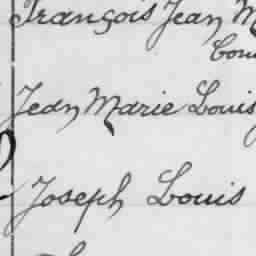 François Jean
Jean Marie Louis
Joseph Louis